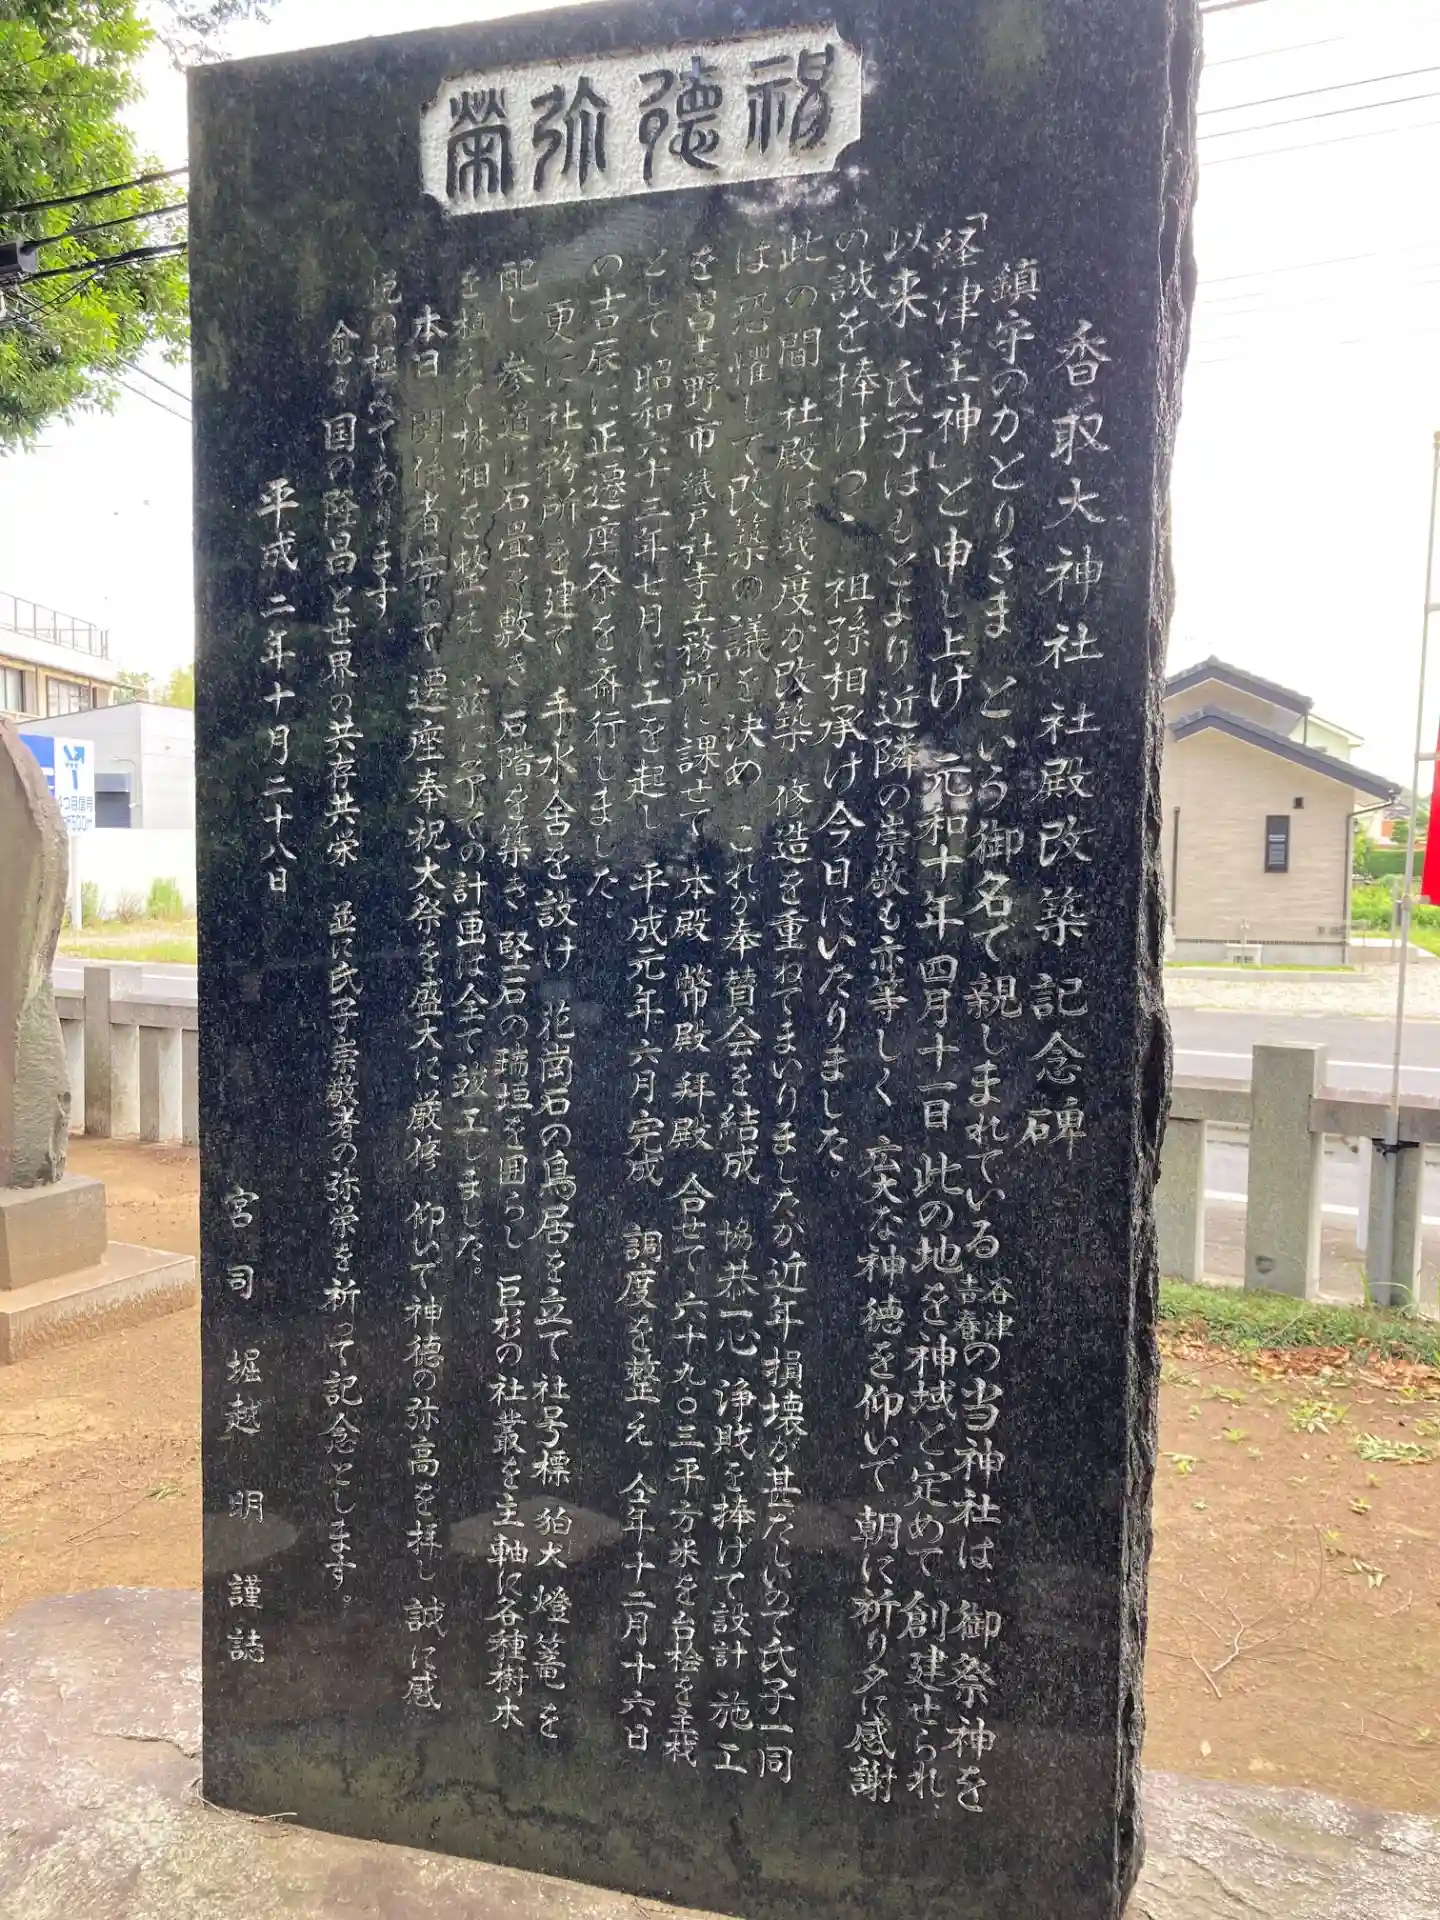 神徳弥榮
香取大神社社殿改築記念碑
鎮守のかとりさま という御名で親しまれている谷津喜春の当神社は、御祭神を
「経津主神」と申し上げ 元和十年四月十一日 此の地を神域と定めて 創建せられ、
以来 氏子はもとより近隣の崇敬も亦等しく 広大な神徳を仰いで 朝に祈り夕に感謝
の誠を捧げつゝ 祖孫相承け今日にいたりました。
此の間 社殿は幾度か改築 修造を重ねてまいりましたが近年損壊が甚だしいので氏子一同
は恐懼して改築の議を決め これが奉賛会を結成 協恭一心 浄財を捧げて設計 施工
を習志野市 織戸社寺工務所に課せて 本殿 幣殿 拝殿 合せて六十九、〇三平方米を台桧を主材
として 昭和六十三年七月に工を起し 平成元年六月完成 調度を整え 仝年十二月十六日
の吉辰に正遷座祭を斎行しました。
更に社務所を建て 手水舎を設け 花崗石の鳥居を立て 社号標 狛犬 燈篭を
配し 参道に石畳を敷き 石階を築き 堅石の瑞垣を囲らし 巨杉の社叢を主軸に各種樹木
を植えて林相を整え 並に予ての計画は全て竣工しました。
本日 関係者挙って遷座奉祝大祭を盛大に厳修 仰いで神徳の弥高を拝し 誠に感
記の極みであります
愈々国の隆昌と世界の共存共栄 並に氏子崇敬者の弥栄を祈って記念とします。
平成二年十月二十八日
宮司 堀越 明 謹誌